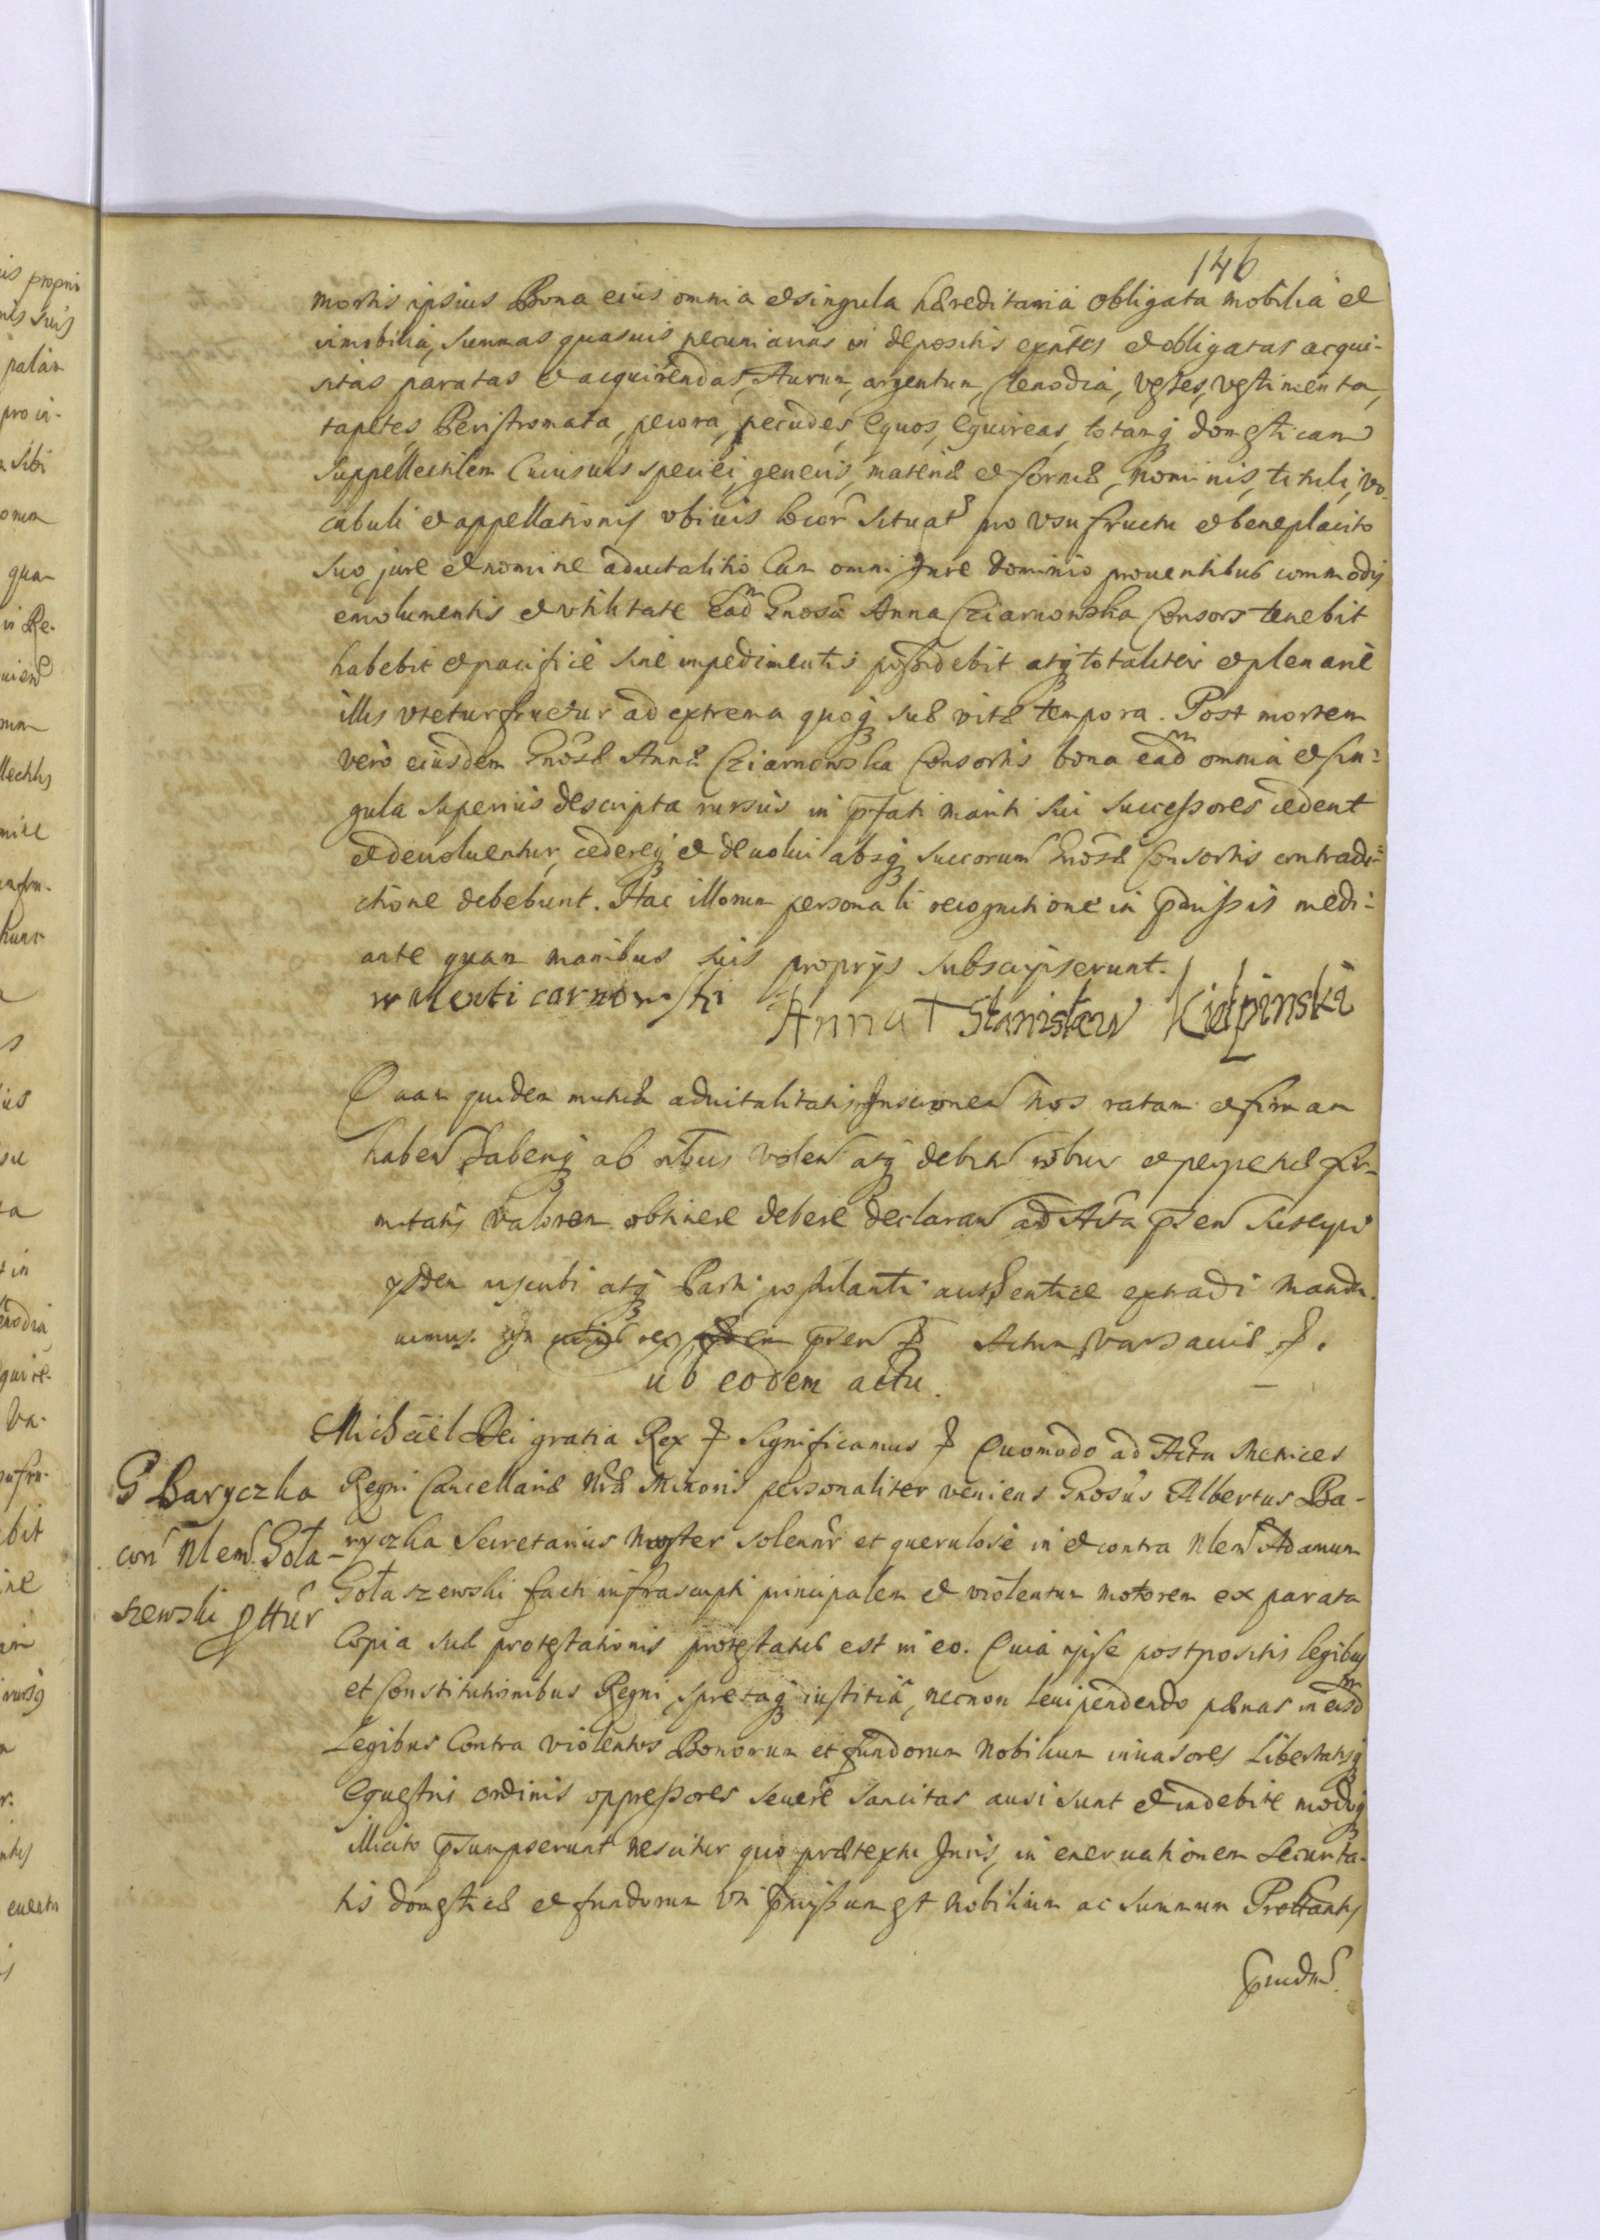 146
mortis ipsius Bona eius omnia et singula hæreditaria obligata mobilia et
imobilia, summas quasuis pecuniarias in depositis exntes et obligatas acqui-
sitas paratas et acquirendas, Aurum, argentum, clenodia, vestes, vestimenta,
tapetes, Peristromata, pecora, pecudes, equos, equireas, totamq domesticam
suppellectilem cuiusuis speciei, generis, materiæ et formæ, nominis, tituli, vo-
cabuli et appellationis vbiuis locor situat pro vsufructu et beneplacito
suo, jure et nomine aduitalitio cum omni jure dominio prouentibus commodis
emolumentis et vtilitate ead Gnosa Anna Cziarnowska Consors tenebit
habebit et pacifice sine impedimentis possidebit atq totaliter et plenarie
illis vtetur fruetur ad extrema quoq suæ vitæ tempora. Post mortem
vero eiusdem Gnosæ Annæ Cziarnowska Consortis bona ead omnia et sin-
gula superius descripta rursus in pfati mariti sui successores cedent
et deuoluentur, cedereq et deuolui absq succorum Gnosæ Consortis contradi-
ctione debebunt. Hac illorum personali recognitione in pmissis medi-
ante quam manibus suis proprijs subscripserunt.
walenti carnowski Anna + Stanisław Kiełpinski
Quam quidem mutuæ aduitalitatis Inscrionem Nos ratam et firmam
haben haberiq ab oibus volen atq debitu robur et perpetuæ fir-
mitatis valorem obtinere debere declaran ad Acta psen suscepi
ibidem inscribi atq Parti postulanti authentice extradi manda-
uimus. In cuius rei fidem psen &. Actum Varsauiæ &.
ub eodem actu.
Michaël Dei gratia Rex & Significamus & Quomodo ad Acta Metrices
G Baryczka
con Nlem Goła-
szewski pttur
Regni Cancellariæ Nræ Minoris personaliter veniens Gnosus Albertus Ba-
ryczka Secretarius Noster solennr et querulose in et contra Nlem Adamum
Gołaszewski facti infrascripti principalem et violentum motorem ex parata
Copia suæ protestationis protestatus est in eo. Quia ipse postpositis legibus
et Constitutionibus Regni, spretaq iustitia, necnon leuipendendo pænas in eisd
Legibus Contra violentos Bonorum et fundorum Nobilium inuasores Libertatisq
equestris ordinis oppressores seuere sancitas ausi sunt et indebite modoq
illicito psumpserunt nescitur quo prætextu Juris, in eneruationem securita-
tis domesticæ et fundorum vti pmissum est Nobilium ac summum Prottantis